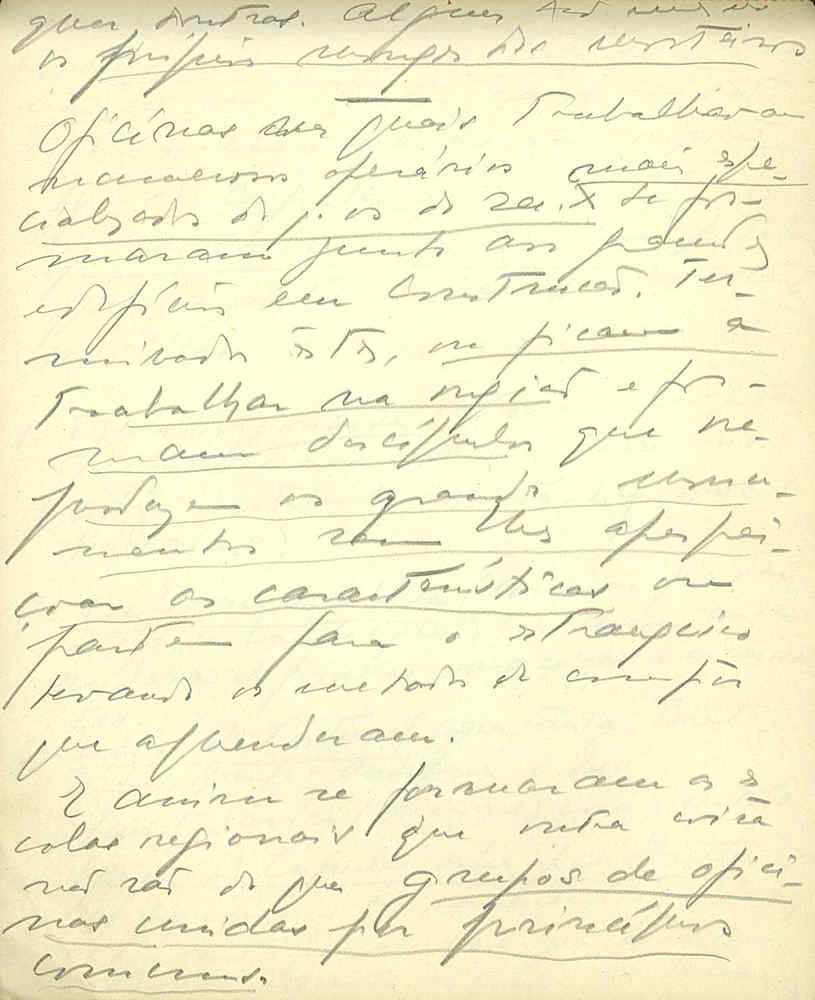 quer doutras. Alguns são
os próprios monges dos mosteiros
Oficinas nas quais trabalhavam
numerosos operários mais espe-
cializados do q. os do sec. X se for-
maram junto aos grandes
edifícios em construção. Ter-
minados êstes, ou ficam a
trabalhar na região e for-
mam discípulos que re-
produzem os grandes monu-
mentos sem lhes aperfei-
çoar as características ou
partem para o estrangeiro
levando os metodos de
que aprenderam.
E assim se formaram as es
colas regionais que outra coisa
não são do que grupos de ofici-
nas unidas por princípios
comuns.